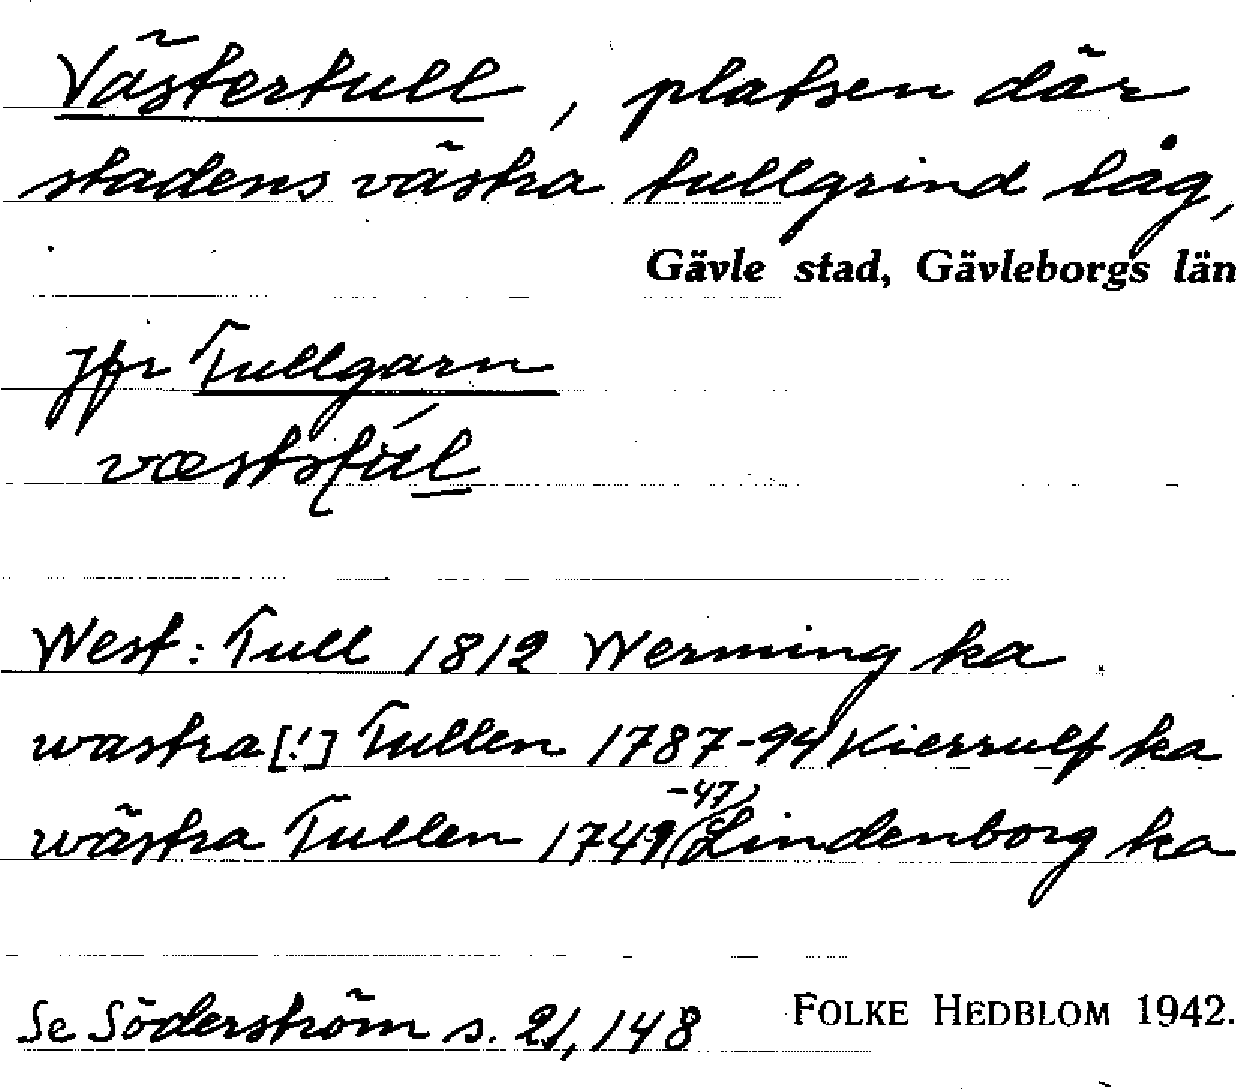 Västertull, platsen där
stadens västra tullgrind låg,
Gävle stad, Gävleborgs län
Jfr Tullgarn
West: Tull 1812 Werming ka
wastra [!] Tullen 1787-94 Kierrulf ka
-47)
wästra Tullen 1749( Lindenborg ka
Se Söderström s. 21, 148
FOLKE HEDBLOM 1942.